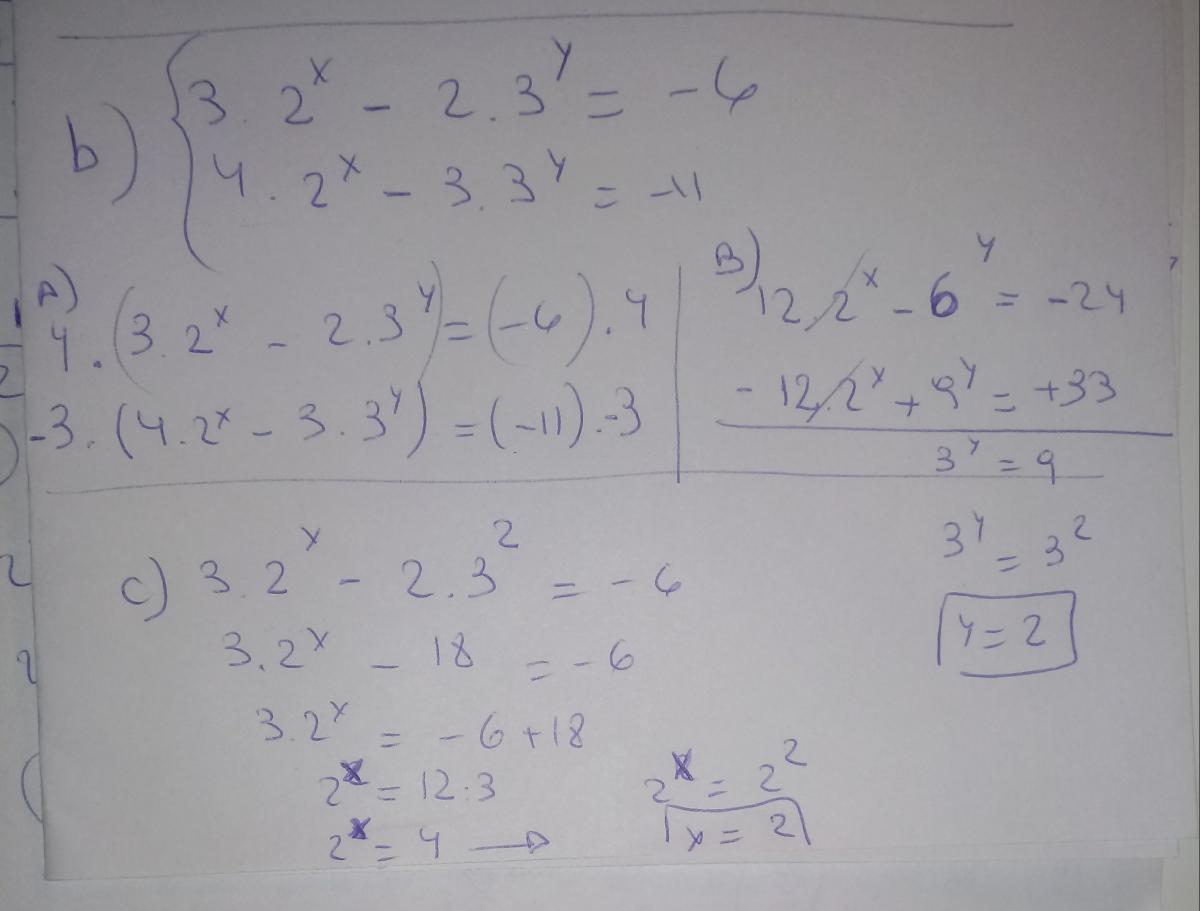 b) { 3. 2^x - 2. 3^y = -6
4. 2^x - 3. 3^y = -11
A)
4. (3. 2^x - 2. 3^y) = (-6). 4
-3. (4. 2^x - 3. 3^y) = (-11). -3
B) 12. 2^x - 6^y = -24
- 12. 2^x + 9^y = +33
3^y = 9
3^y = 3^2
y = 2
C) 3. 2^x - 2. 3^2 = -6
3. 2^x - 18 = -6
3. 2^x = -6 + 18
2^x = 12:3
2^x = 4 →
2^x = 2^2
x = 2